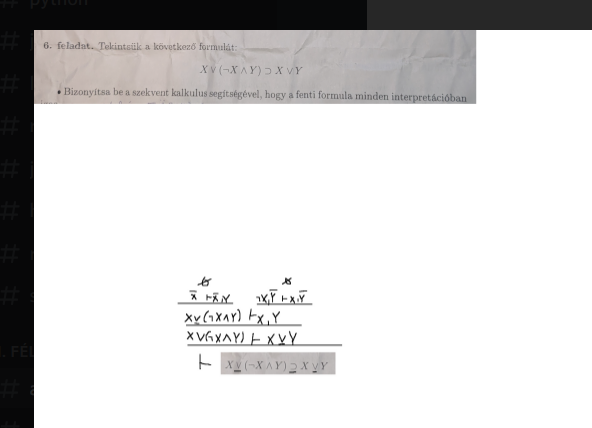 # python
6. feladat. Tekintsük a következő formulát:
X ∨ (¬X ∧ Y) ⊃ X ∨ Y
• Bizonyítsa be a szekvent kalkulus segítségével, hogy a fenti formula minden interpretációban
X ⊢ X,Y ¬X,Y ⊢ X,Y
X∨(¬X∧Y) ⊢ X,Y
X∨(¬X∧Y) ⊢ X∨Y
⊢ X∨(¬X∧Y) ⊃ X∨Y
. FÉL